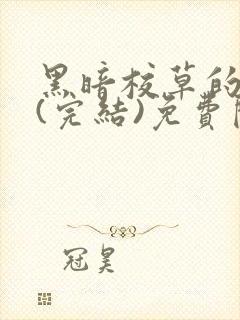 黑暗校草的
(完結)免費
冠昊